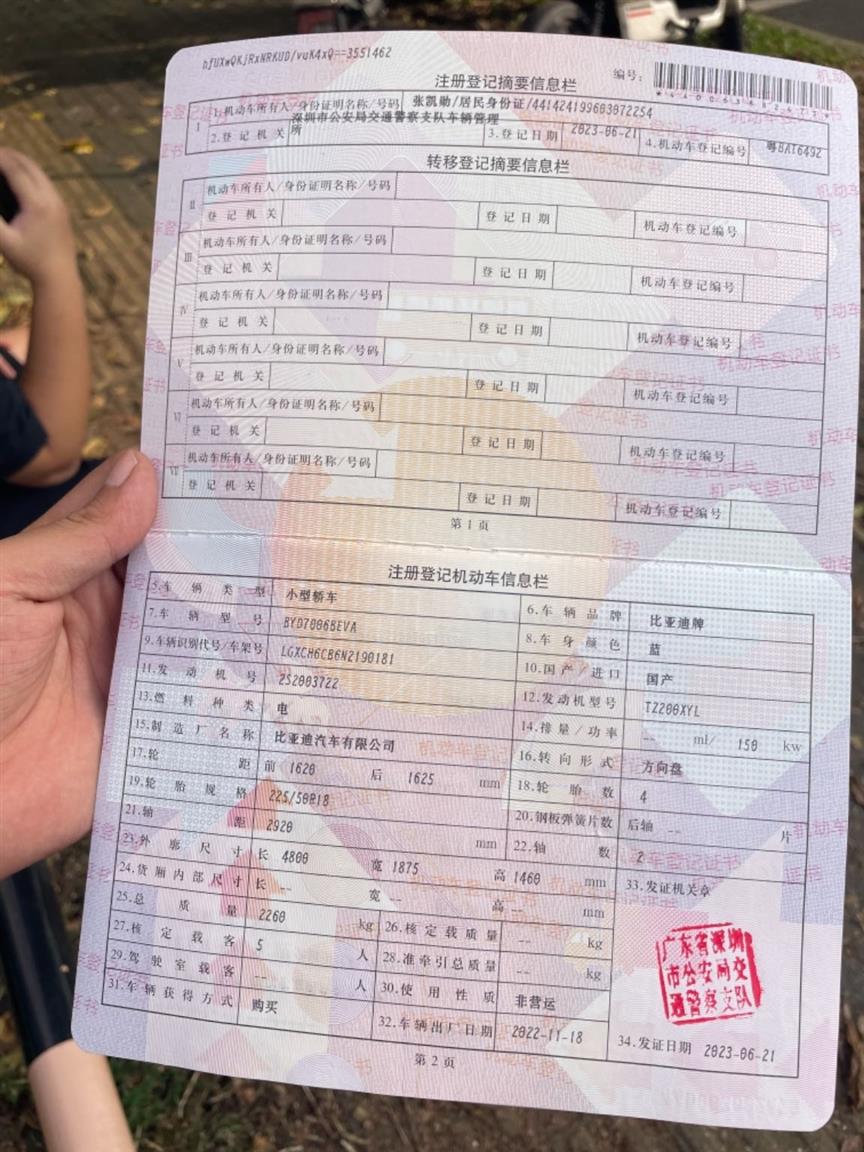 hfUXwQKjRxNRKUD/vuK4xQ==3551462
注册登记摘要信息栏
编号:
I 1.机动车所有人/身份证明名称/号码 张凯勋/居民身份证/441424199603072254
2.登记机关 深圳市公安局交通警察支队车辆管理所 3.登记日期 2023-06-21 4.机动车登记编号 粤BA16492
转移登记摘要信息栏
II 机动车所有人/身份证明名称/号码
登记机关 登记日期 机动车登记编号
III 机动车所有人/身份证明名称/号码
登记机关 登记日期 机动车登记编号
IV 机动车所有人/身份证明名称/号码
登记机关 登记日期 机动车登记编号
V 机动车所有人/身份证明名称/号码
登记机关 登记日期 机动车登记编号
VI 机动车所有人/身份证明名称/号码
登记机关 登记日期 机动车登记编号
VII 机动车所有人/身份证明名称/号码
登记机关 登记日期 机动车登记编号
第1页
注册登记机动车信息栏
5.车辆类型 小型轿车 6.车辆品牌 比亚迪牌
7.车辆型号 BYD7006BEVA 8.车身颜色 蓝
9.车辆识别代号/车架号 LGXCH6CB6N2190181 10.国产/进口 国产
11.发动机号 252003722 12.发动机型号 TZ200XYL
13.燃料种类 电 14.排量/功率 -- ml/ 150 kw
15.制造厂名称 比亚迪汽车有限公司 16.转向形式 方向盘
17.轮距 前 1620 后 1625 mm 18.轮胎数 4
19.轮胎规格 225/50R18 20.钢板弹簧片数 后轴 -- 片
21.轴距 2920 mm 22.轴数 2
23.外廓尺寸 长 4800 宽 1875 高 1460 mm 33.发证机关章
24.货厢内部尺寸 长 -- 宽 -- 高 -- mm
25.总质量 2260 kg 26.核定载质量 -- kg
27.核定载客 5 人 28.准牵引总质量 -- kg
29.驾驶室载客 -- 人 30.使用性质 非营运
31.车辆获得方式 购买 32.车辆出厂日期 2022-11-18 34.发证日期 2023-06-21
广东省深圳
市公安局交
通警察支队
第2页
机动车登记证书